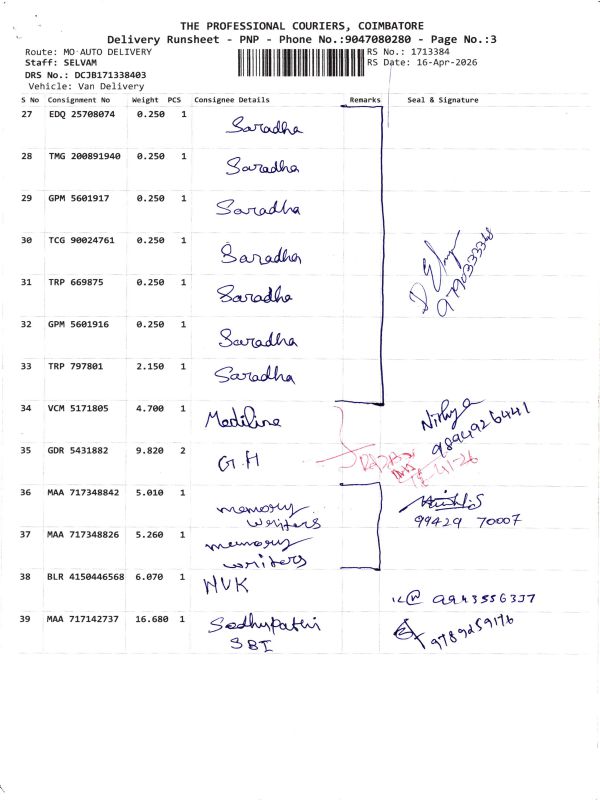 THE PROFESSIONAL COURIERS, COIMBATORE
Delivery Runsheet - PNP - Phone No.:9047080280 - Page No.:3
Route: MO AUTO DELIVERY RS No.: 1713384
Staff: SELVAM RS Date: 16-Apr-2026
DRS No.: DCJB171338403
Vehicle: Van Delivery
S No Consignment No Weight PCS Consignee Details Remarks Seal & Signature
27 EDQ 25708074 0.250 1 Saradha
28 TMG 200891940 0.250 1 Saradha
29 GPM 5601917 0.250 1 Saradha
30 TCG 90024761 0.250 1 Saradha
31 TRP 669875 0.250 1 Saradha
32 GPM 5601916 0.250 1 Saradha
33 TRP 797801 2.150 1 Saradha
34 VCM 5171805 4.700 1 Mediline Nithya
9894926441
35 GDR 5431882 9.820 2 G.H
36 MAA 717348842 5.010 1 memory
writers
99429 70007
37 MAA 717348826 5.260 1 memory
writers
38 BLR 4150446568 6.070 1 NVK
39 MAA 717142737 16.680 1 Sadhypathi 9789259176
SBI